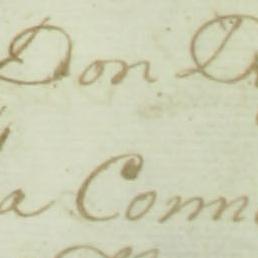 Don D
a Comm